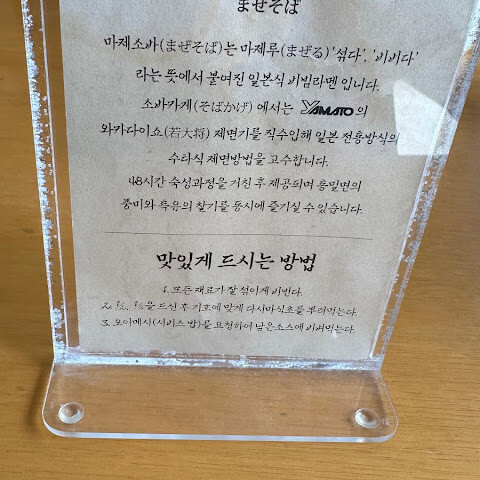 まぜそば
마제소바(まぜそば)는 마제루(まぜる) '섞다', '비비다'
라는 뜻에서 붙여진 일본식 비빔라멘 입니다.
소바카게(そばかげ) 에서는 YAMATO의
와카다이쇼(若大将) 제면기를 직수입해 일본 전통방식의
수타식 제면방법을 고수합니다.
48시간 숙성과정을 거친 후 제공되며 통밀면의
풍미와 특유의 찰기를 동시에 즐기실 수 있습니다.
맛있게 드시는 방법
1. 모든 재료가 잘 섞이게 비빈다.
2. 1/2, 1/3을 드신 후 기호에 맞게 다시마식초를 뿌려먹는다.
3. 오이메시(서비스 밥)를 요청하여 남은소스에 비벼먹는다.